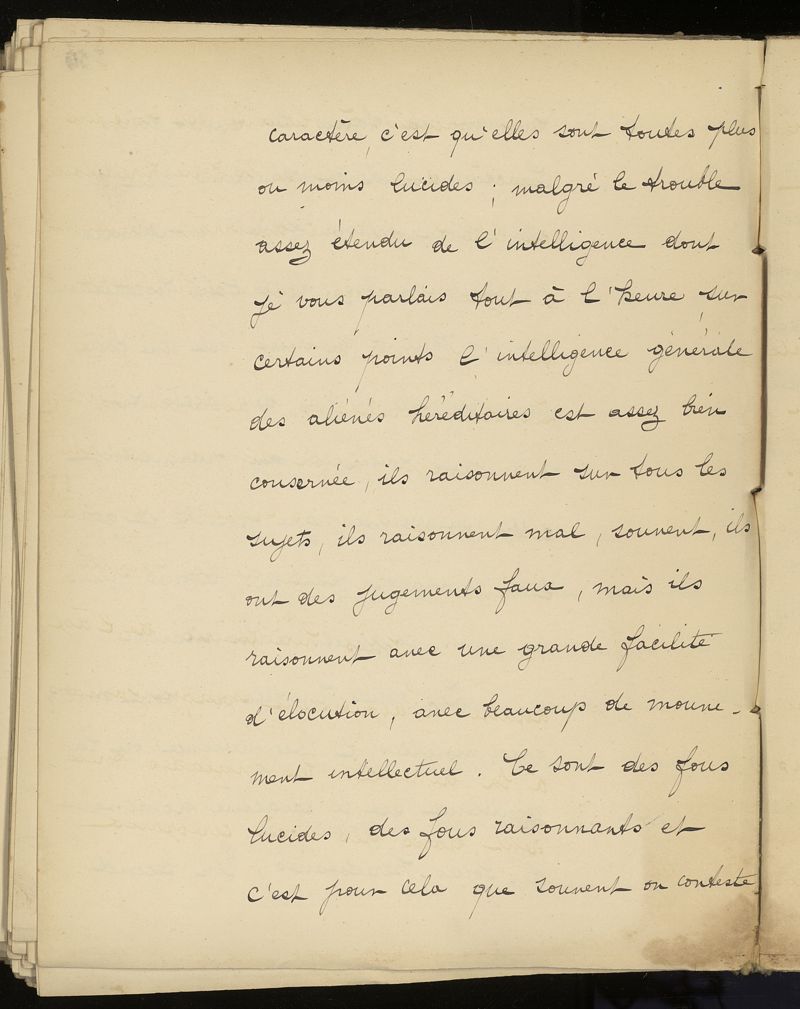 caractère, c'est qu'elles sont toutes plus
ou moins lucides ; malgré le trouble
assez étendu de l'intelligence dont
je vous parlais tout à l'heure sur
certains points l'intelligence générale
des aliénés héréditaires est assez bien
conservée, ils raisonnent sur tous les
sujets, ils raisonnent mal, souvent, ils
ont des jugements faux, mais ils
raisonnent avec une grande facilité
d'élocution, avec beaucoup de mouve-
ment intellectuel. Ce sont des fous
lucides, des fous raisonnants et
c'est pour cela que souvent on conteste